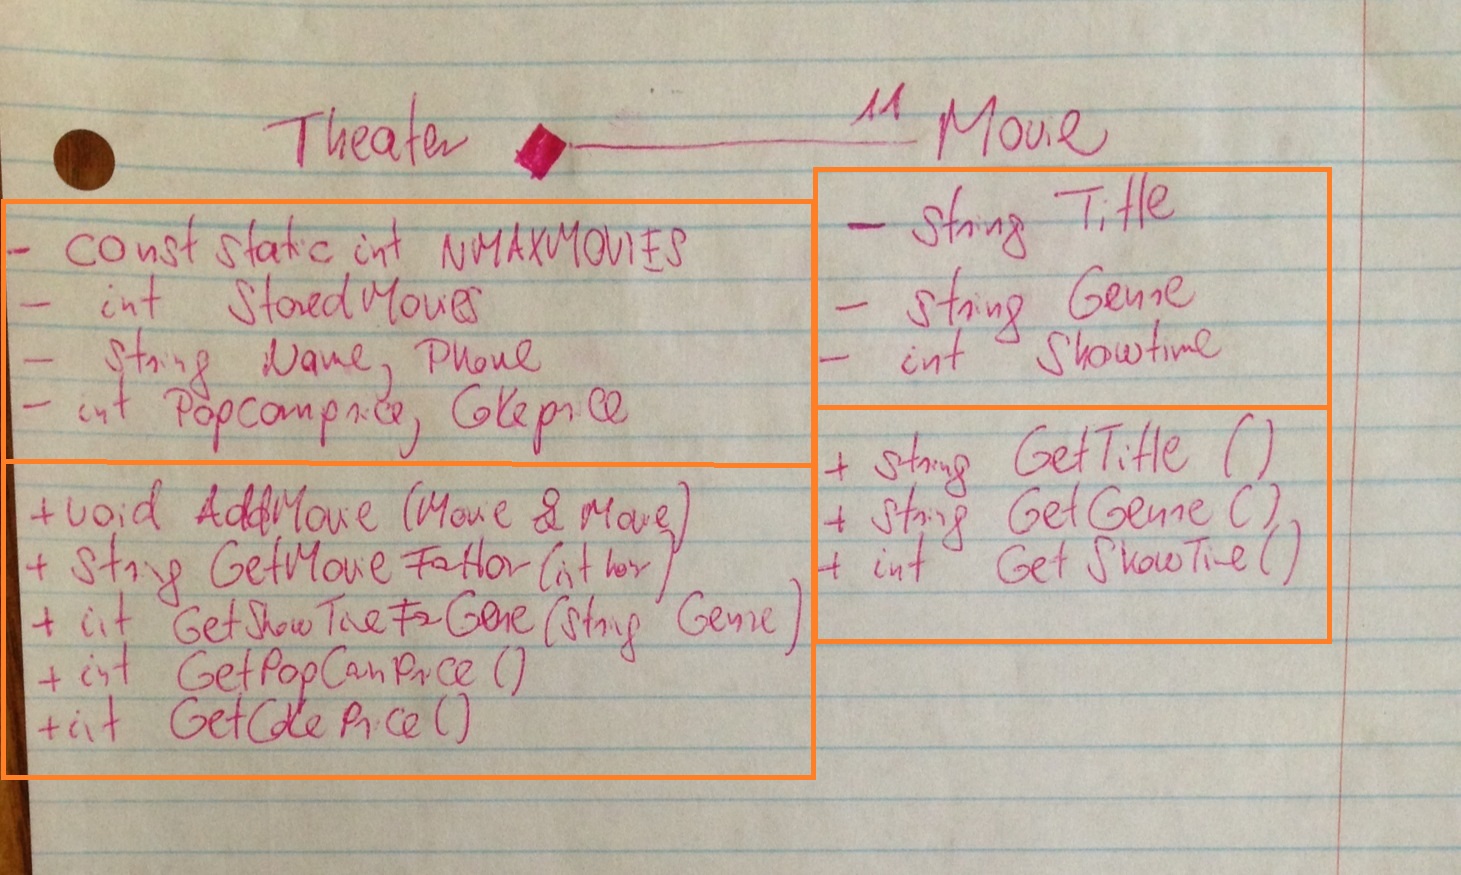 Theater 11 Movie
- const static int NMAXMOVIES
- int StoredMovies
- string Name, Phone
- int Popcornprice, Cokeprice
+ void AddMovie (Movie & Movie)
+ string GetMovieForHor (int hor)
+ int GetShowTimeForGenre (string Genre)
+ int GetPopCornPrice ()
+ int GetCokePrice ()
- string Title
- string Genre
- int Showtime
+ string GetTitle ()
+ string GetGenre ()
+ int GetShowTime ()